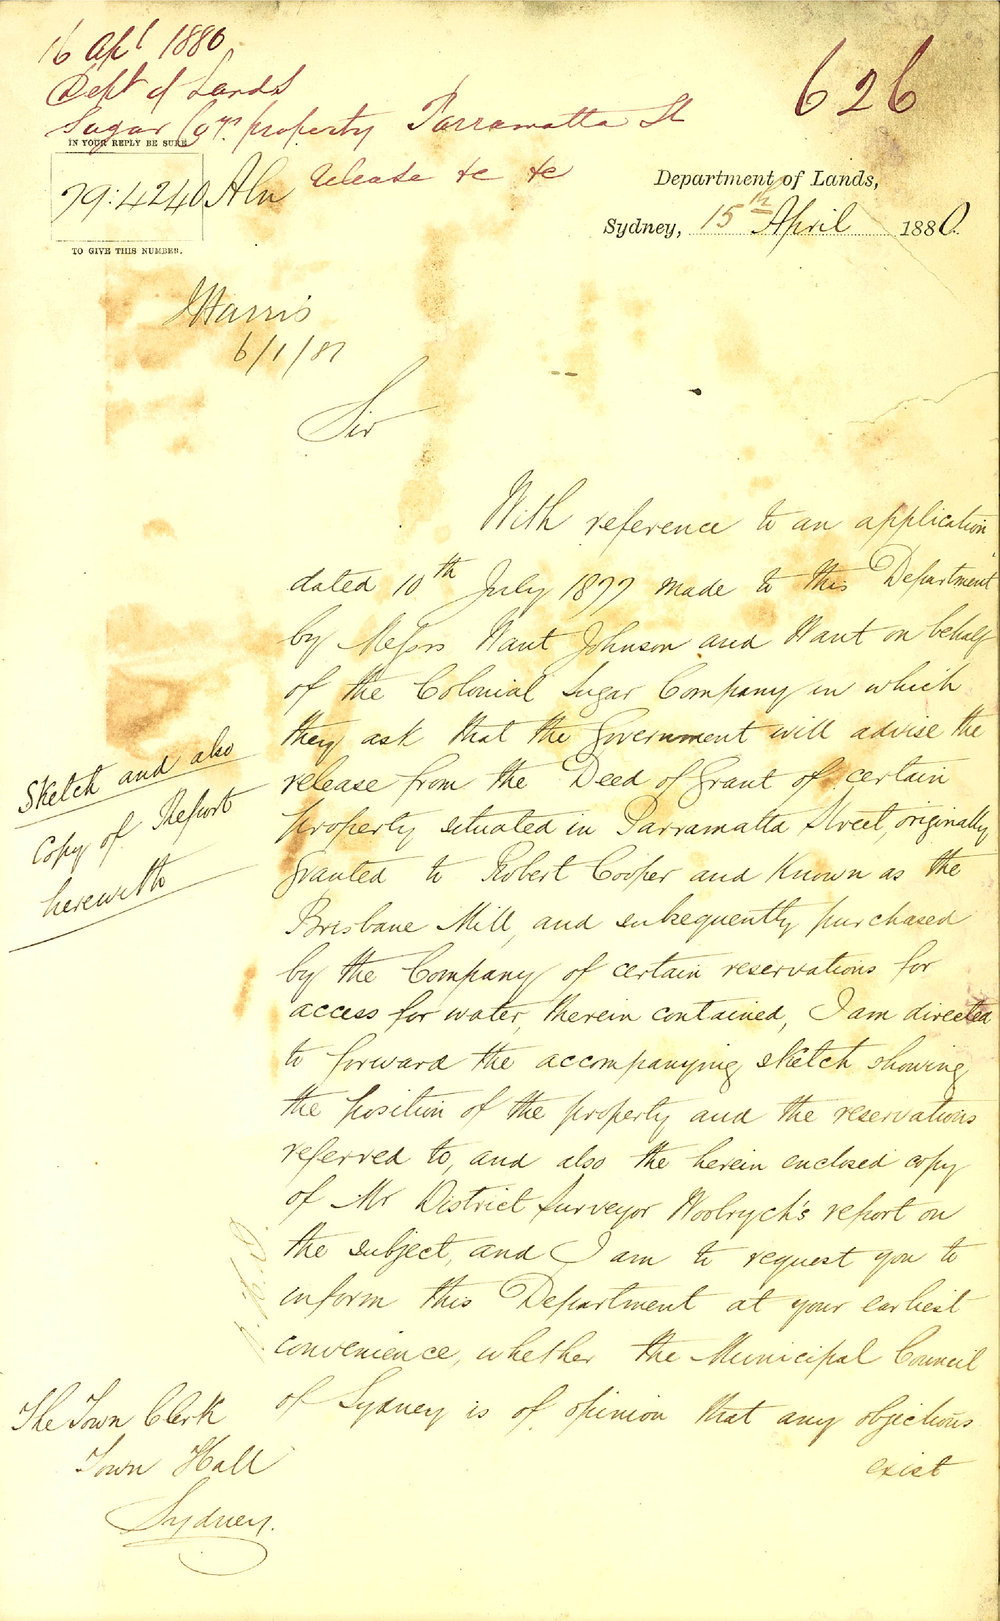 16 Apl 1880
Dept of Lands
Sugar Coys property Parramatta St
release &c &c
626
IN YOUR REPLY BE SURE
79:4240 Aln
TO GIVE THIS NUMBER.
Department of Lands,
Sydney, 15th April 1880.
JHarris
6/1/81
Sir
With reference to an application
dated 10th July 1877 made to this Department
by Messrs Want Johnson and Want on behalf
of the Colonial Sugar Company in which
they ask that the Government will advise the
release from the Deed of Grant of certain
property situated in Parramatta Street, originally
granted to Robert Cooper and Known as the
Brisbane Mill, and subsequently purchased
by the Company of certain reservations for
access for water, therein contained, I am directed
to forward the accompanying sketch showing
the position of the property and the reservations
referred to, and also the herein enclosed copy
of Mr District Surveyor Woolrych's report on
the subject, and I am to request you to
inform this Department at your earliest
convenience, whether the Municipal Council
of Sydney is of opinion that any objections
exist
Sketch and also
Copy of Report
herewith
The Town Clerk
Town Hall
Sydney.